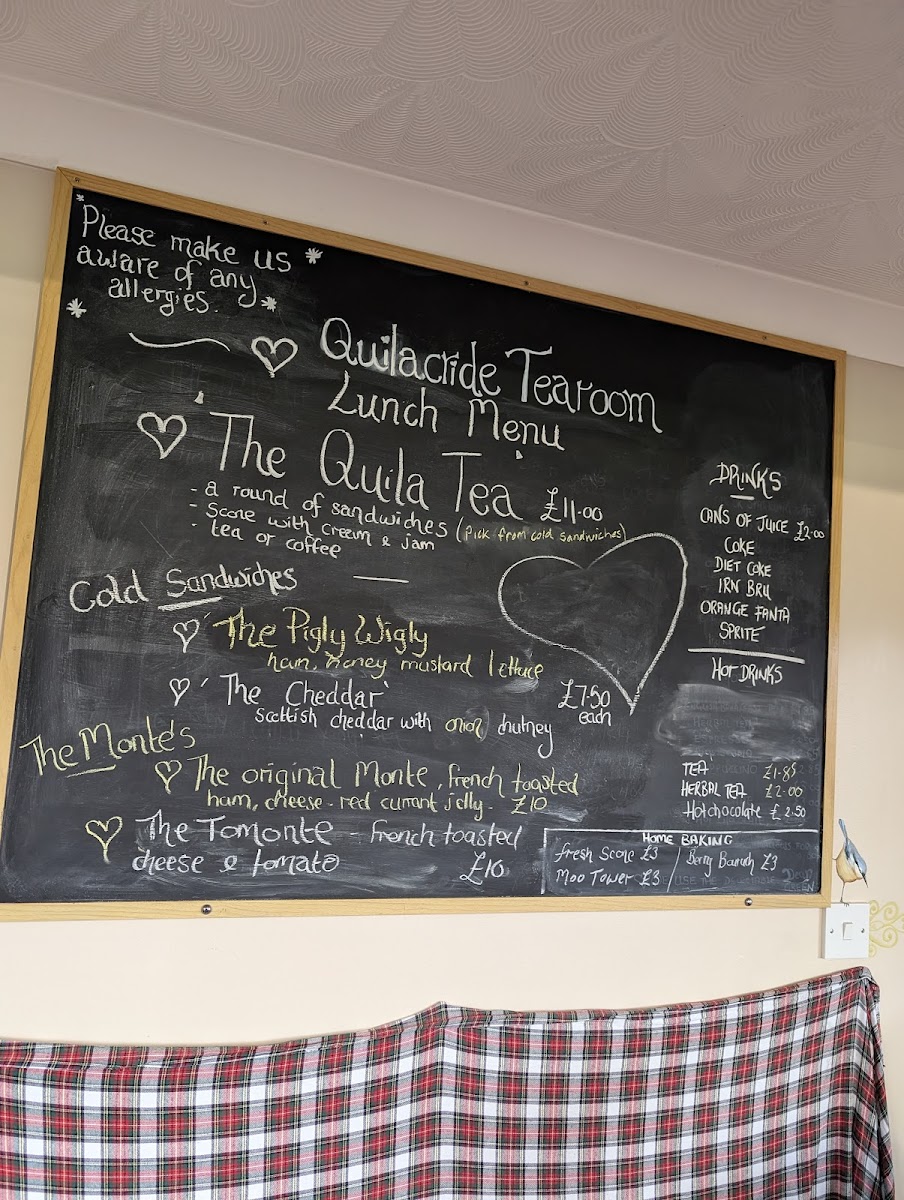 Please make us
aware of any
allergies.
Quilacride Tearoom
Lunch Menu
'The Quila Tea' £11.00
- a round of sandwiches (Pick from cold sandwiches)
- Scone with cream & jam
- tea or coffee
Cold Sandwiches
'The Pigly Wigly
ham, honey mustard lettuce
'The Cheddar'
Scottish cheddar with onion chutney
£7.50
each
The Monte's
The original Monte, french toasted
ham, cheese - red currant jelly - £10
The Tomonte - french toasted
cheese & tomato £10
DRINKS
CANS OF JUICE £2.00
COKE
DIET COKE
IRN BRU
ORANGE FANTA
SPRITE
HOT DRINKS
TEA £1.85
HERBAL TEA £2.00
Hot chocolate £2.50
HOME BAKING
Fresh Scone £3
Moo Tower £3
Berry £3